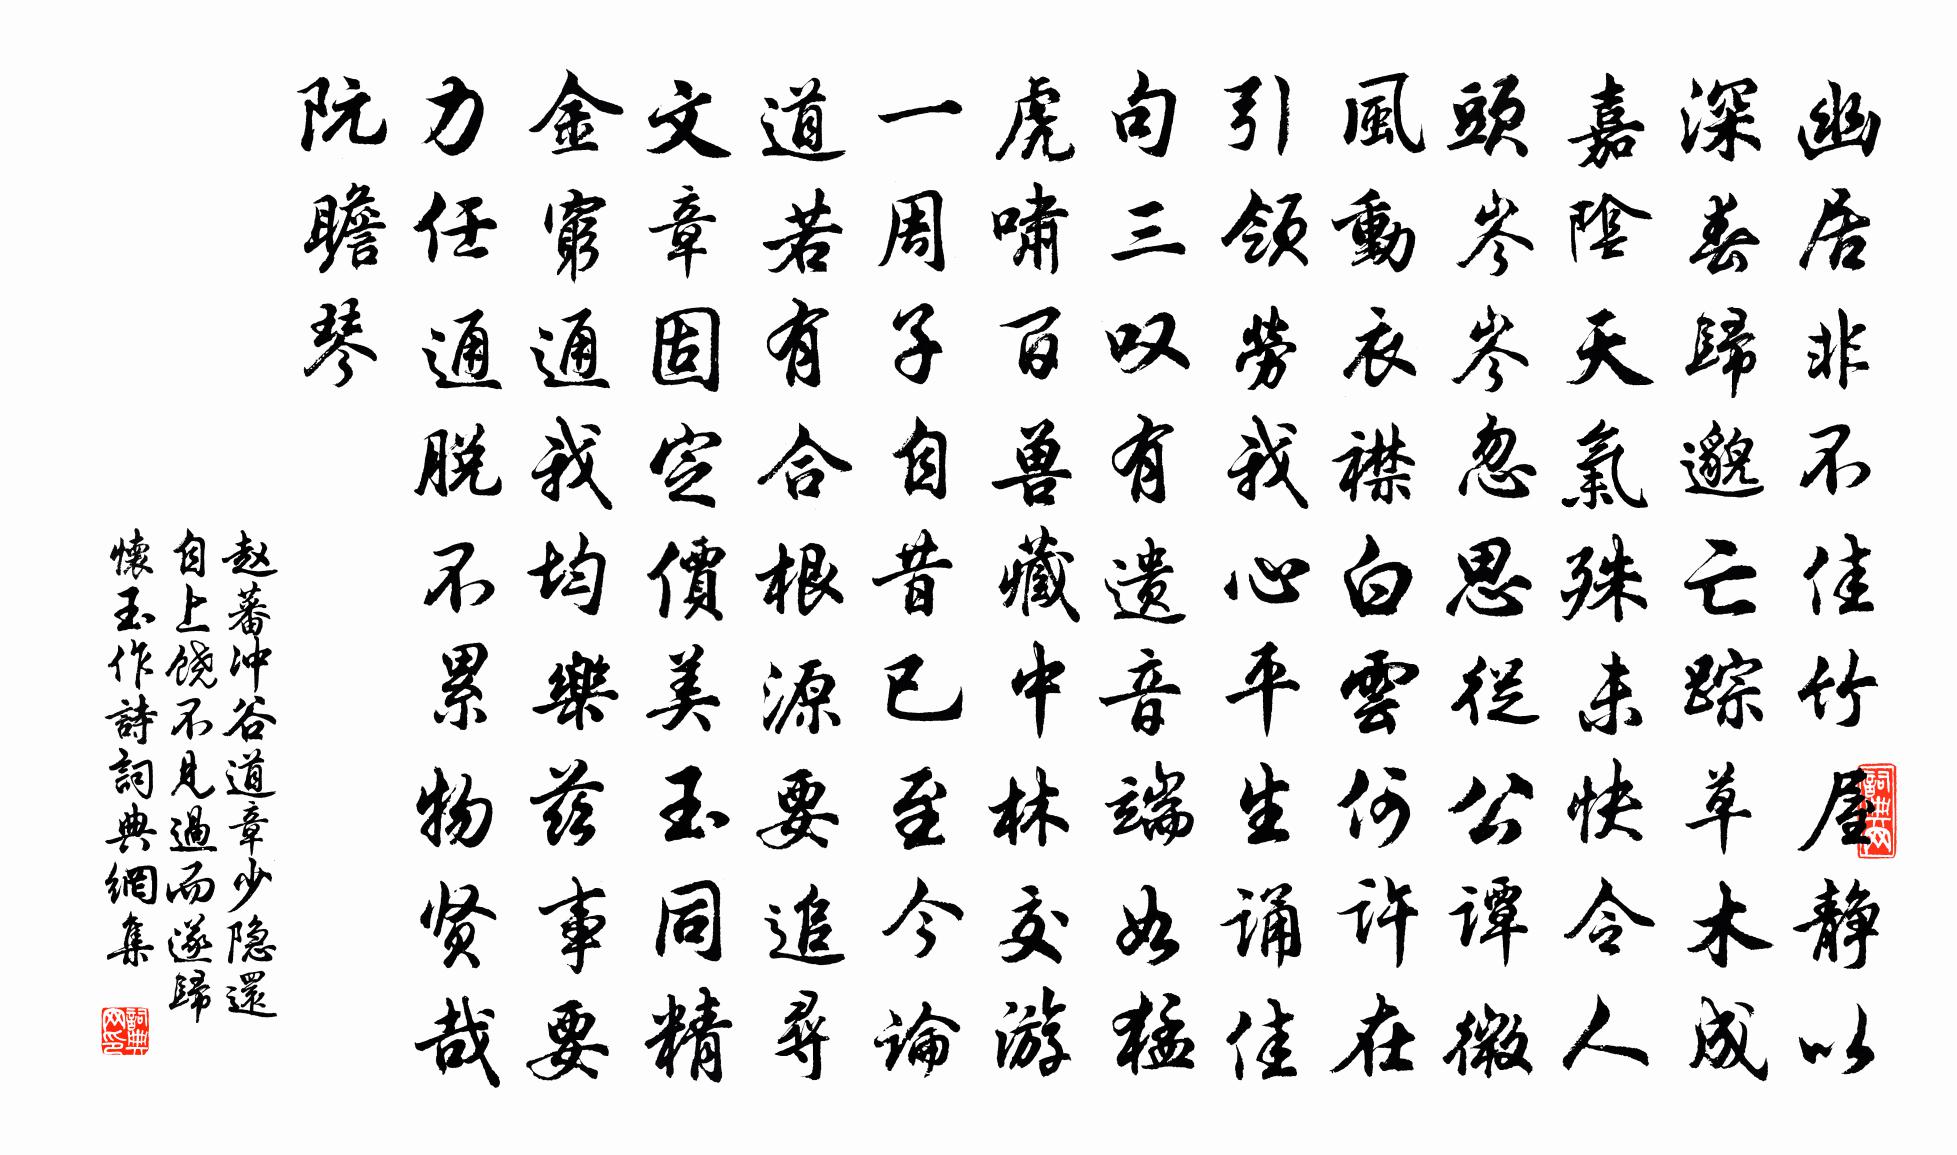 幽居非不佳竹屋静以
深春歸邈亡踪草木成
嘉陰天氣殊未快令人
頭岑岑忽思從公譚微
風動衣襟白雲何許在
引領勞我心平生诵佳
句三叹有遗音端如猛
虎啸百兽藏中林交游
一周子自昔已至今论
道若有合根源要追尋
文章固定價美玉同精
金窮通我均樂兹事要
力任通脱不累物贤哉
阮瞻琴
赵蕃沖谷道章少隐還
自上饶不見過而遂歸
懷玉作詩詞典網集
詞典网
詞典网印